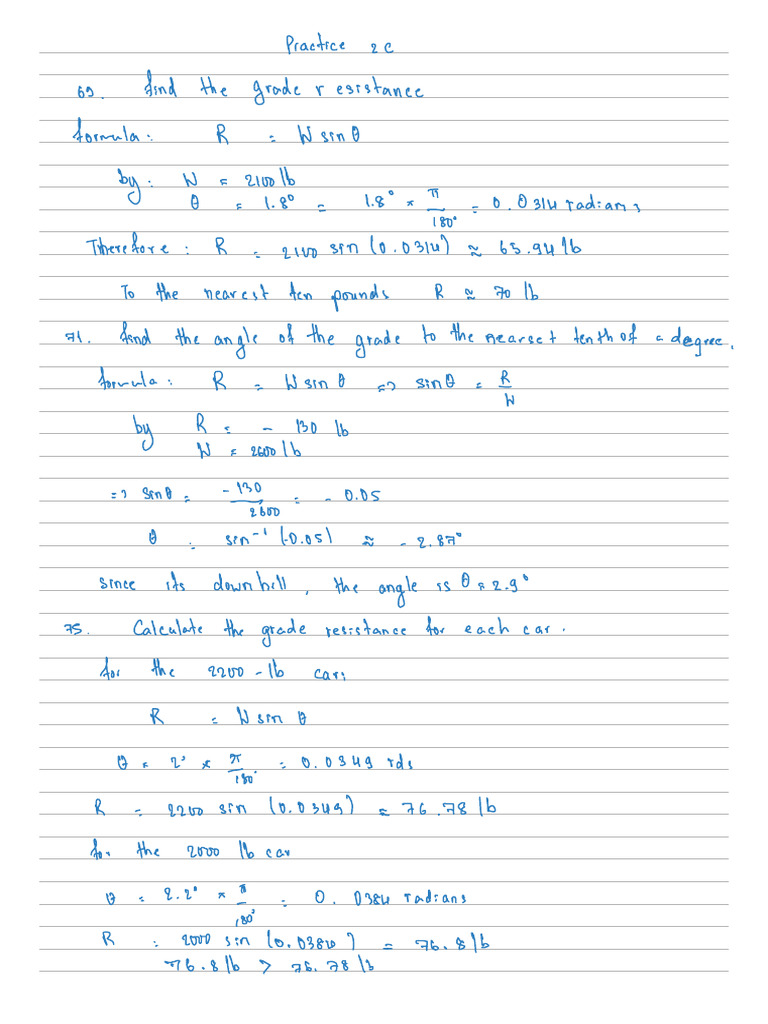 Practice 2C
69. find the grade resistance
formula: R = W sin θ
by: W = 2100 lb
θ = 1.8° = 1.8° * π/180° = 0.0314 radians
Therefore: R = 2100 sin (0.0314) ≈ 65.94 lb
To the nearest ten pounds R ≈ 70 lb
71. find the angle of the grade to the nearset tenth of a degree.
formula: R = W sin θ => sin θ = R/W
by R = - 130 lb
W = 2600 lb
=> sin θ = -130/2600 = - 0.05
θ = sin⁻¹ (-0.05) ≈ - 2.87°
since its downhill, the angle is θ = 2.9°
75. Calculate the grade resistance for each car.
for the 2200-lb car:
R = W sin θ
θ = 2° * π/180° = 0.0349 rds
R = 2200 sin (0.0349) = 76.78 lb
for the 2000 lb car
θ = 2.2° * π/180° = 0.0384 radians
R = 2000 sin (0.0384) = 76.8 lb
76.8 lb > 76.78 lb